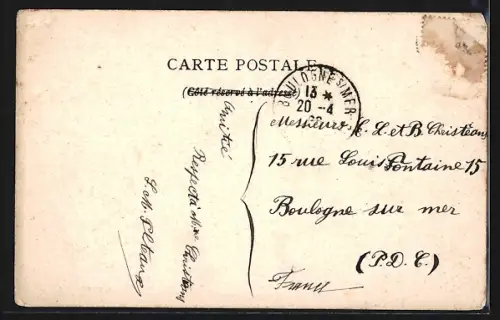 CARTE POSTALE
(Côté réservé à l'adresse)
BOULOGNE S/ MER
13 *
20-4
Messieurs L et B. Christiaens
15 rue Louis Fontaine 15
Boulogne sur mer
(P.D.C)
France
Amitié
Respect à Mme